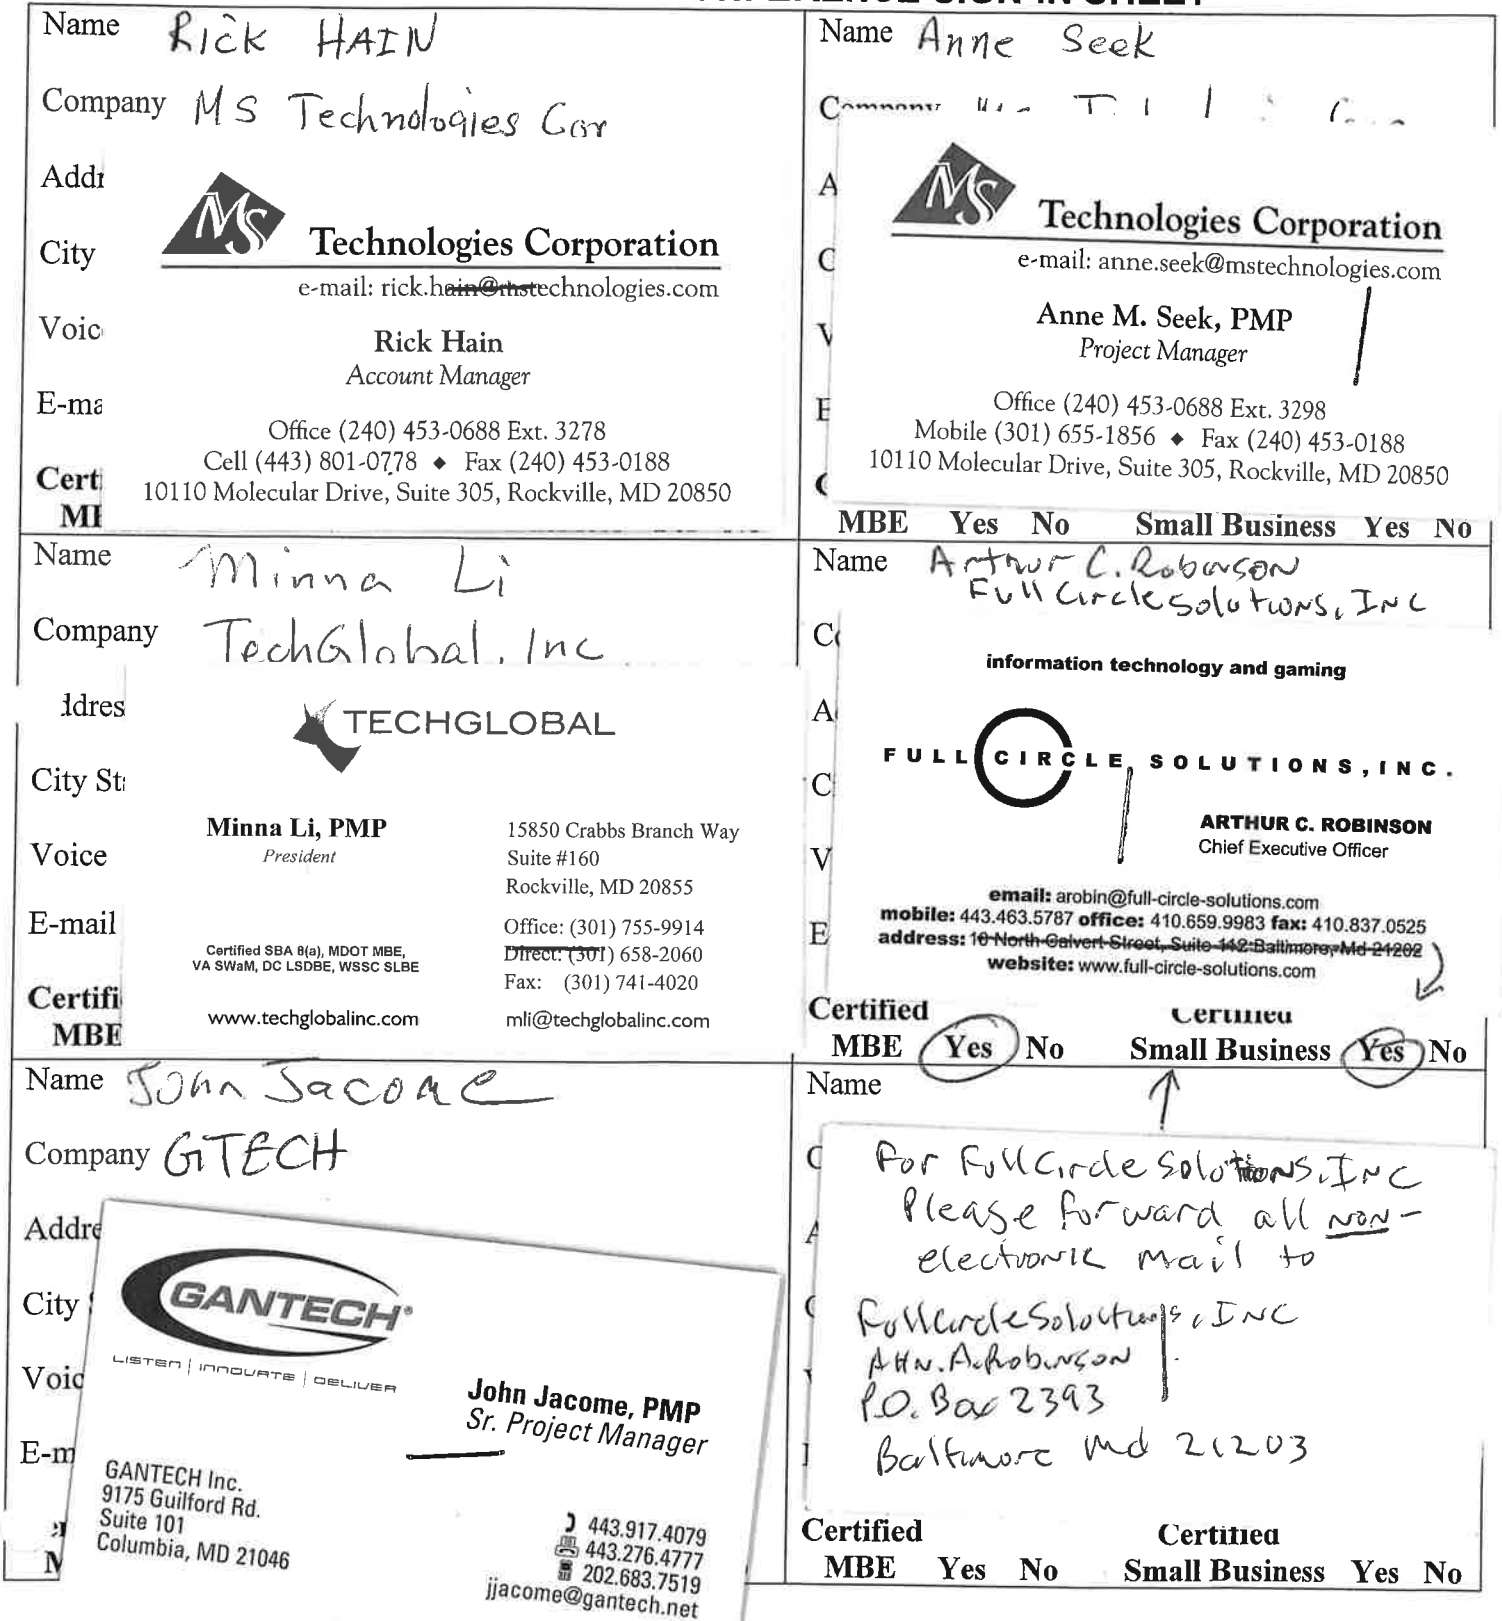 SIGN-IN SHEET
Name Rick HAIN
Company MS Technologies Cor
Addr
City
Voic
E-ma
Cert
MS
Technologies Corporation
e-mail: rick.hain@mstechnologies.com
Rick Hain
Account Manager
Office (240) 453-0688 Ext. 3278
Cell (443) 801-0778 ◆ Fax (240) 453-0188
10110 Molecular Drive, Suite 305, Rockville, MD 20850
Name Anne Seek
Company
A
C
V
E
MS
Technologies Corporation
e-mail: anne.seek@mstechnologies.com
Anne M. Seek, PMP
Project Manager
Office (240) 453-0688 Ext. 3298
Mobile (301) 655-1856 ◆ Fax (240) 453-0188
10110 Molecular Drive, Suite 305, Rockville, MD 20850
MBE Yes No Small Business Yes No
Name Minna Li
Company TechGlobal, Inc
ddres
City St
Voice
E-mail
Certifi
MBE
TECHGLOBAL
Minna Li, PMP
President
15850 Crabbs Branch Way
Suite #160
Rockville, MD 20855
Office: (301) 755-9914
Direct: (301) 658-2060
Fax: (301) 741-4020
Certified SBA 8(a), MDOT MBE,
VA SWaM, DC LSDBE, WSSC SLBE
www.techglobalinc.com
mli@techglobalinc.com
Name Arthur C. Robinson
Full Circle Solutions, INC
C
A
C
V
E
information technology and gaming
FULL CIRCLE SOLUTIONS, INC.
ARTHUR C. ROBINSON
Chief Executive Officer
email: arobin@full-circle-solutions.com
mobile: 443.463.5787 office: 410.659.9983 fax: 410.837.0525
address: 10 North Calvert Street, Suite 142 Baltimore, Md 21202
website: www.full-circle-solutions.com
Certified Certified
MBE Yes No Small Business Yes No
Name John Jacome
Company GTECH
Addre
City
Voic
E-m
GANTECH®
LISTEN | INNOVATE | DELIVER
John Jacome, PMP
Sr. Project Manager
GANTECH Inc.
9175 Guilford Rd.
Suite 101
Columbia, MD 21046
443.917.4079
443.276.4777
202.683.7519
jjacome@gantech.net
Name
For Full Circle Solutions, INC
Please forward all non-
electronic mail to
Full Circle Solutions, INC
Attn. A. Robinson
P.O. Box 2393
Baltimore Md 21203
Certified Certified
MBE Yes No Small Business Yes No